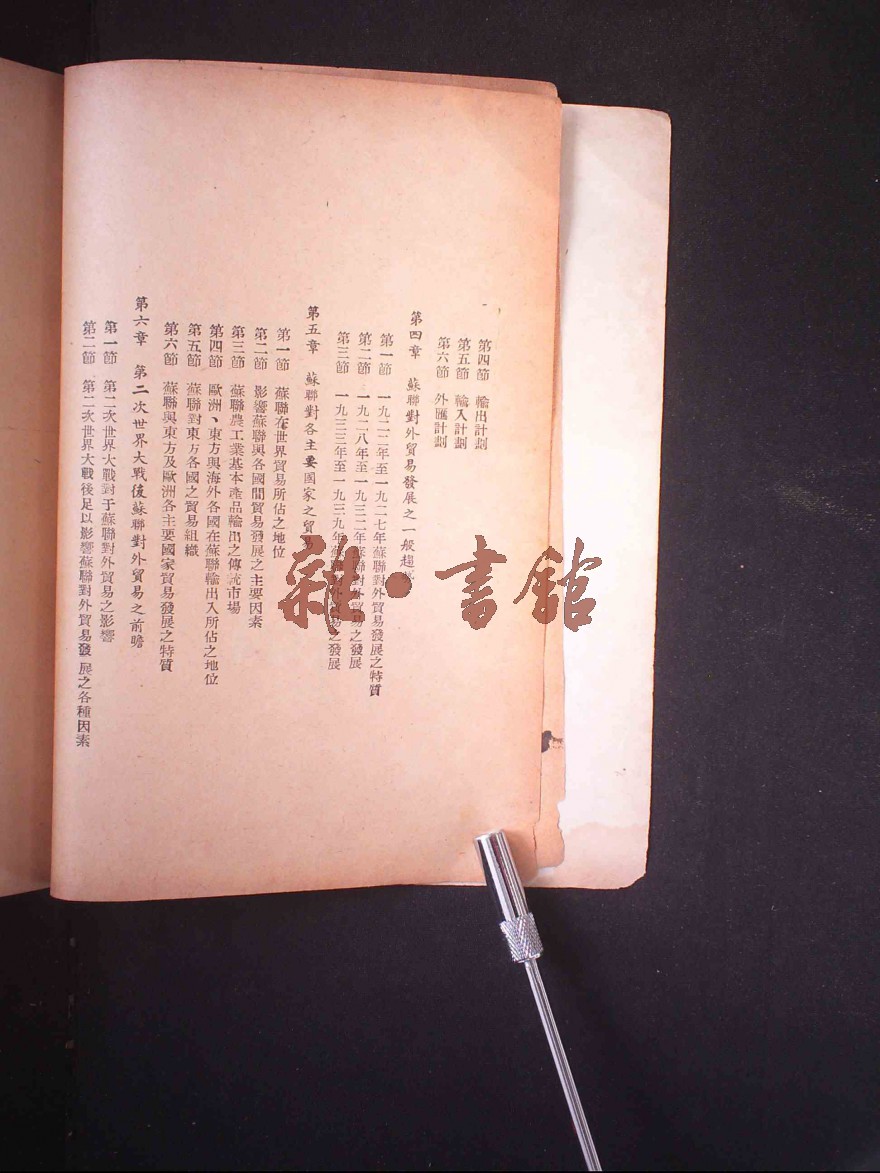 第四節 輸出計劃
第五節 輸入計劃
第六節 外匯計劃
第四章 蘇聯對外貿易發展之一般趨
第一節 一九二二年至一九二七年蘇聯對外貿易發展之特質
第二節 一九二八年至一九三二年蘇聯對外貿易之發展
第三節 一九三三年至一九三九年蘇聯對外貿易之發展
第五章 蘇聯對各主要國家之貿易
第一節 蘇聯在世界貿易所佔之地位
第二節 影響蘇聯與各國間貿易發展之主要因素
第三節 蘇聯農工業基本產品輸出之傳統市場
第四節 歐洲、東方與海外各國在蘇聯輸出入所佔之地位
第五節 蘇聯對東方各國之貿易組織
第六節 蘇聯與東方及歐洲各主要國家貿易發展之特質
第六章 第二次世界大戰後蘇聯對外貿易之前瞻
第一節 第二次世界大戰對于蘇聯對外貿易之影響
第二節 第二次世界大戰後足以影響蘇聯對外貿易發展之各種因素
雜·書館